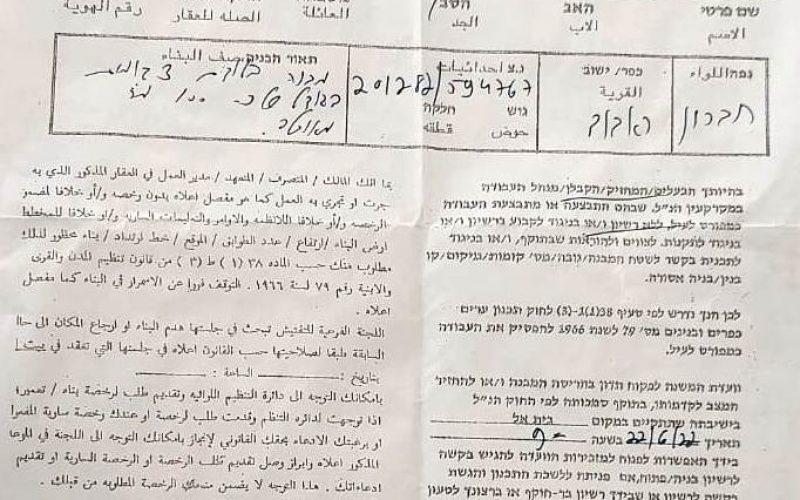 שם פרטי האב הסבא העائلة
الاسم الاب الجد العائلة الصله للعقار رقم الهوية
נפה/לוואء כפר/ישוב נ.צ احداثيات תאור הבניה وصف البناء
القرية גוש חלקה
حوض قطعه
חברון
201282/594767
מבנה בלוקים
מ"ר
בהיותך הבעלים/המחזיק/הקבלן/מנהל העבודה
במקרקעין הנ"ל, שבהם התבצעה או מתבצעת העבודה
כמפורט לעיל, ללא רשיון ו/או בניגוד לקבוע ברשיון ו/או
בניגוד לתקנות, לצווים ולהוראות שבתוקף, ו/או בניגוד
לתכנית בקשר לשטח המבנה/גובה/מס' קומות/מיקום/קו
בנין/בניה אסורה.
לכן הנך נדרש לפי סעיף 38(1)-(3) לחוק תכנון ערים
כפרים ובנינים מס' 79 לשנת 1966 להפסיק את העבודה
כמפורט לעיל.
וועדת המשנה לפקוח תדון בהריסת המבנה ו/או להחזיר
המצב לקדמותו, בתוקף סמכותה לפי החוק הנ"ל
בישיבתה שתתקיים במקום בית אל
תאריך 22/6/22 בשעה 9-
בידך האפשרות לפנות למזכירות הוועדה להגיש בקשה
לרשיון בניה/פתוח, אם פנית ללשכת התכנון והגשת
בקשה לרשיון או שבידך רשיון בר-תוקף או ברצונך לטעון
بما انك المالك / المتصرف / المتعهد / مدير العمل في العقار المذكور الذي به
جرت او تجري به العمل كما هو مفصل اعلاه بدون رخصه و/أو خلافا لمضمون
الرخصه و/أو خلافا للانظمه والاوامر والتعليمات الساريه و/او خلافا للمخطط
ارض البناء /ارتفاع / عدد الطوابق / الموقع / خط ارتداد / بناء محظور لذلك
مطلوب منك حسب الماده ٣٨ (١) ط (٣) من قانون تنظيم المدن والقرى
والابنية رقم ٧٩ لسنة ١٩٦٦. التوقف فورا عن الاستمرار في البناء كما مفصل
اعلاه .
اللجنة الفرعية للتفتيش تبحث في جلستها هدم البناء او ارجاع المكان الى حالته
السابقة طبقا لصلاحيتها حسب القانون اعلاه في جلستها التي تنعقد في بيت ايل
بتاريخ : الساعة :
بامكانك التوجه الى دائرة التنظيم اللوائيه وتقديم طلب لرخصة بناء / تعمير؛
اذا توجهت لدائره التنظيم وقدمت طلب لرخصة او عندك رخصة سارية المفعول
او برغبتك الادعاء بحقك القانوني لإنجاز بامكانك التوجه الى اللجنة في الموعد
المذكور اعلاه وابراز وصل تقديم طلب الرخصة او الرخصة السارية او تقديم
ادعاءاتك . هذا التوجه لا يضمن منحك الرخصة المطلوبه من قبلك .